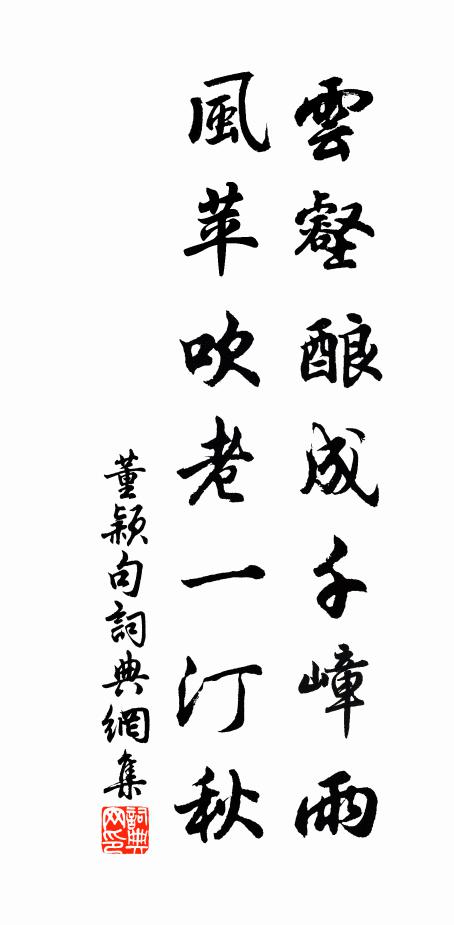 雲壑酿成千嶂雨
風苹吹老一汀秋
董颖句詞典網集
詞典网印